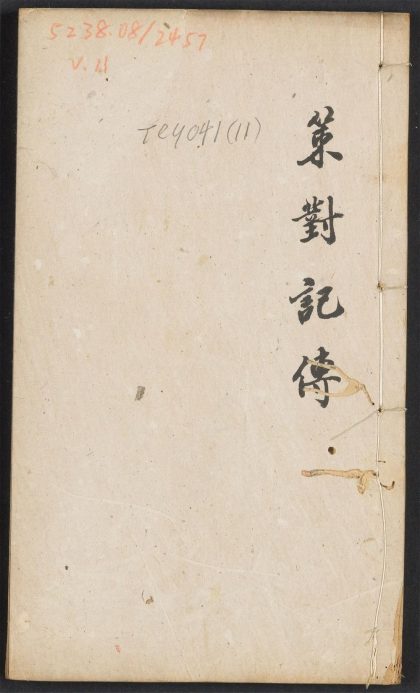 5238.08/2457
v.11
TC4041(11)
策對記傳